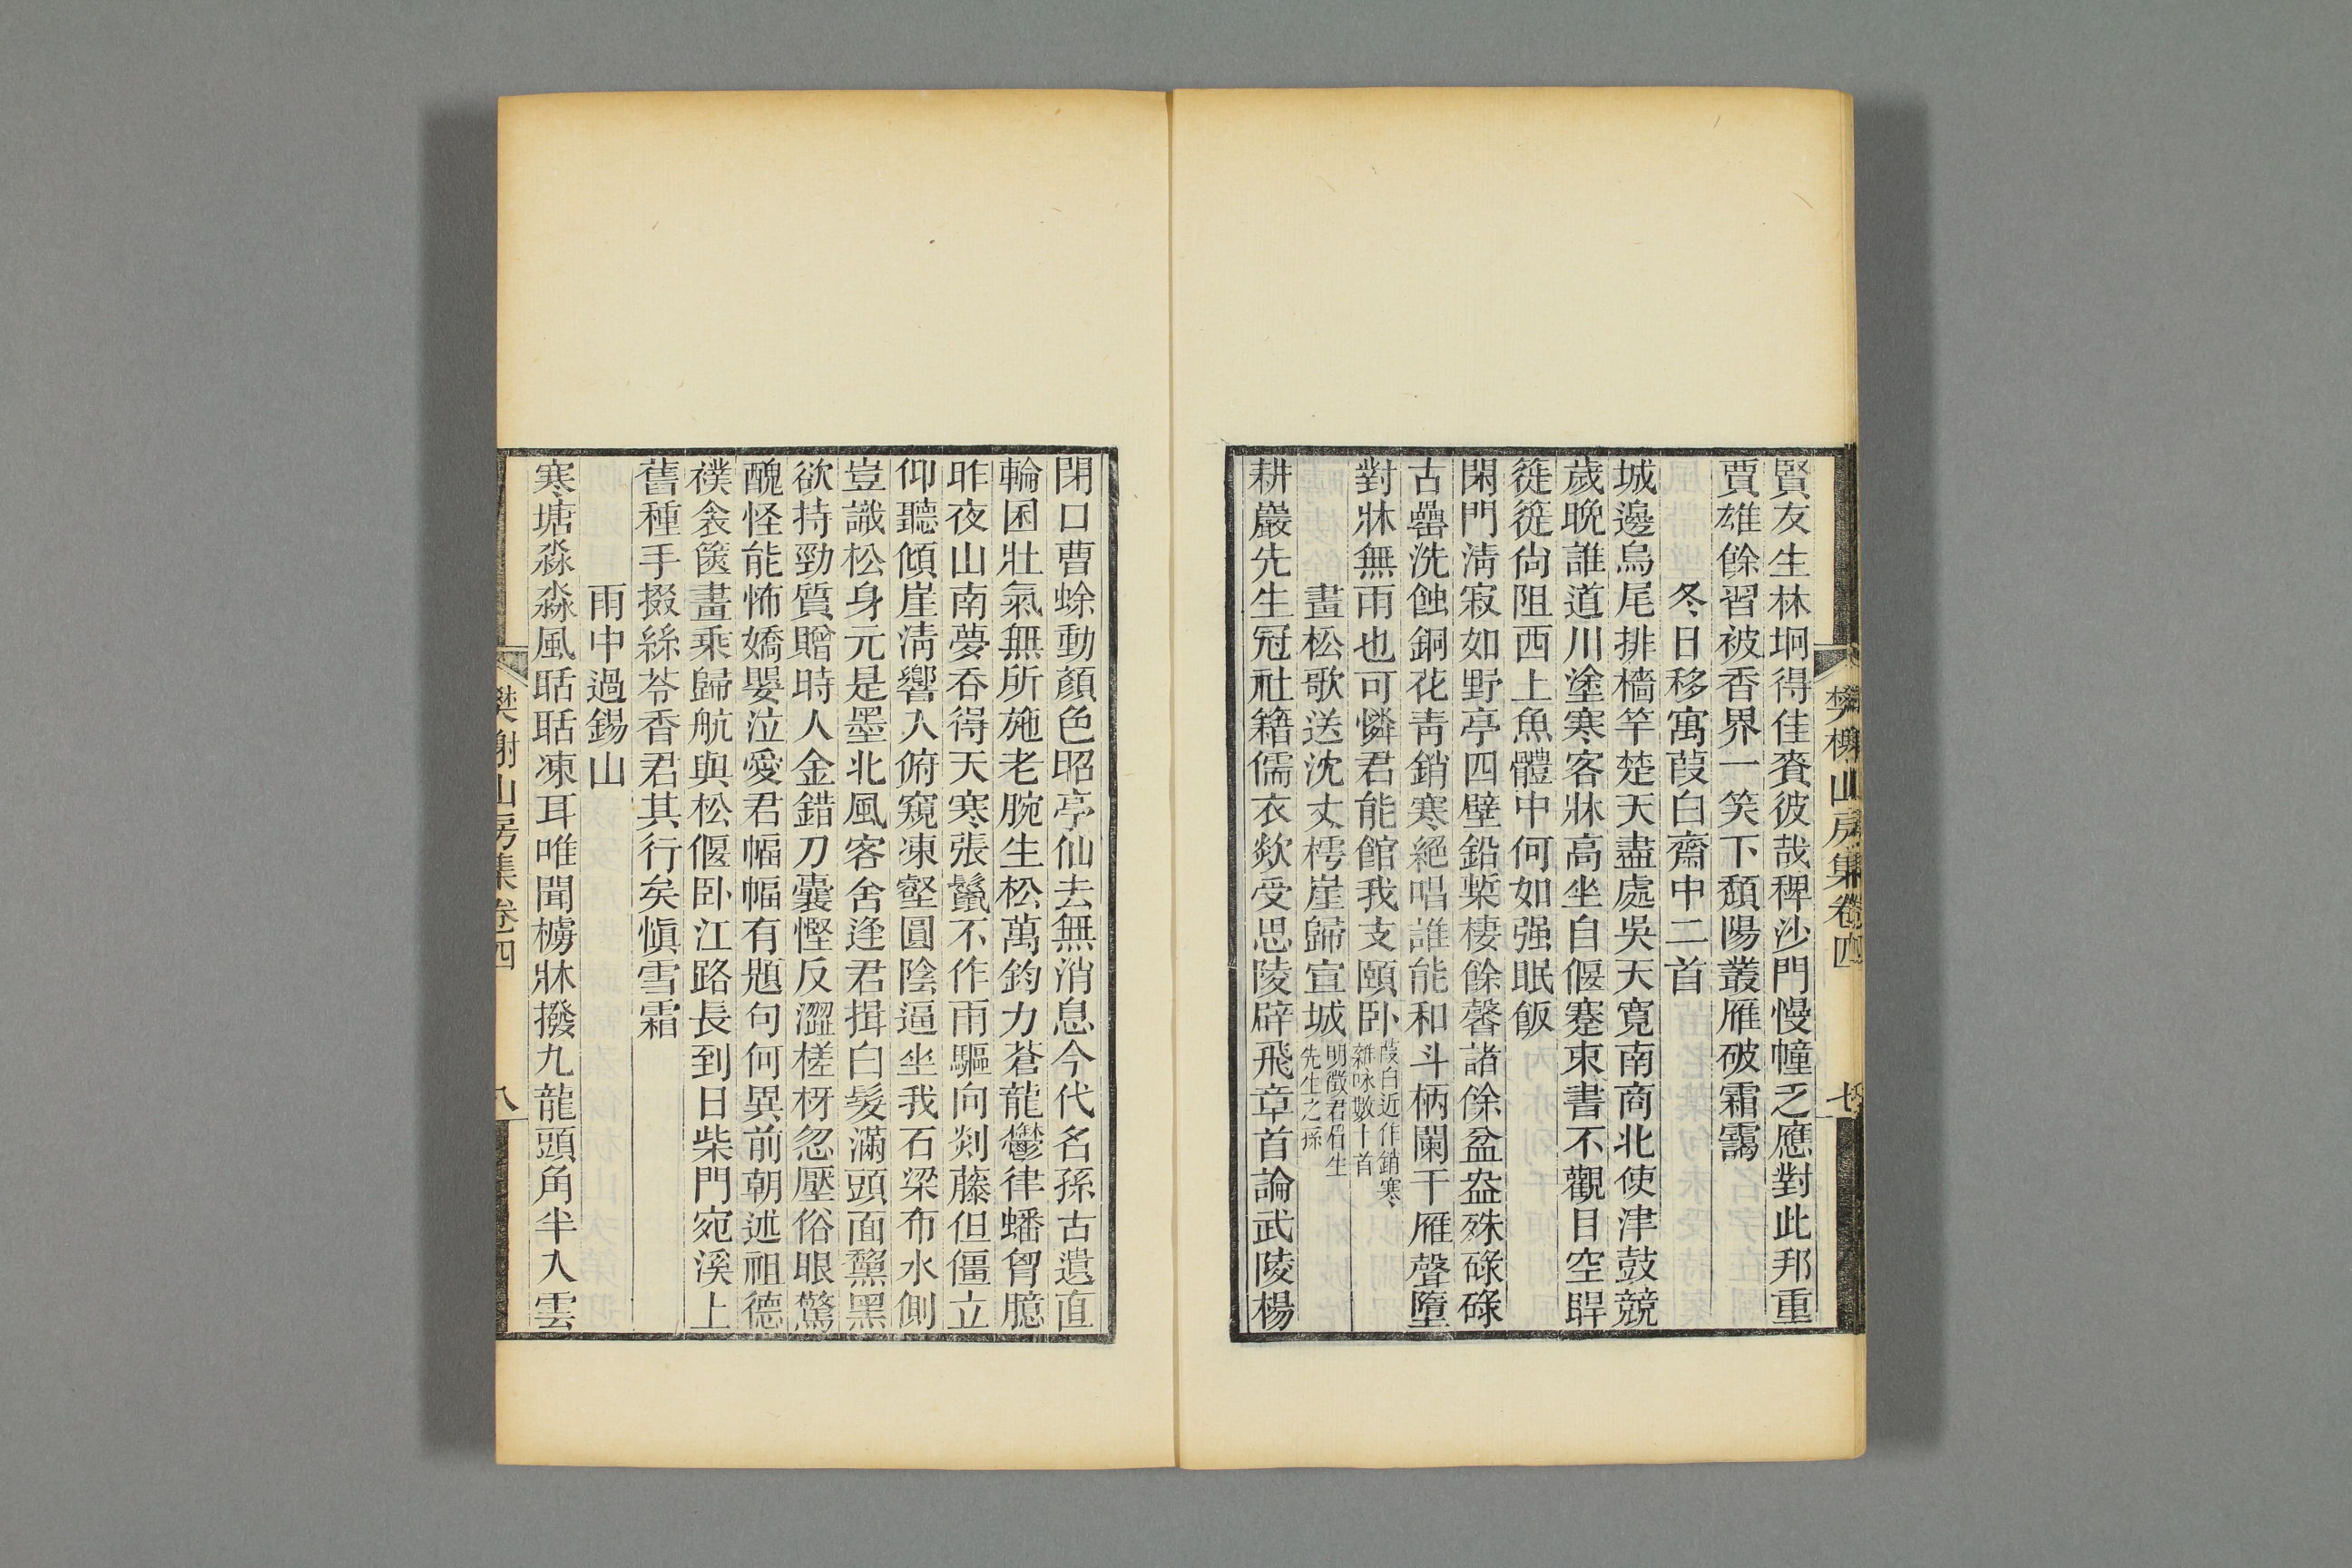 樊榭山房集卷四
七
賢友生林坰得佳賚彼哉稗沙門慢幢乏應對此邦重
賈雄餘習被香界一笑下頽陽叢雁破霜靄
冬日移寓葭白齋中二首
城邊烏尾排檣竿楚天盡處吳天寬南商北使津鼓競
歲晚誰道川塗寒客牀高坐自偃蹇束書不觀目空睅
嵸嵸尙阻西上魚體中何如强眠飯
閑門淸寂如野亭四壁鉛槧棲餘馨諸餘盆盎殊碌碌
古罍洗蝕銅花靑銷寒絕唱誰能和斗柄闌干雁聲墮
對牀無雨也可憐君能館我支頤卧葭白近作銷寒雜咏數十首
畫松歌送沈丈樗崖歸宣城明徵君眉生先生之孫
耕巖先生冠社籍儒衣欻受思陵辟飛章首論武陵楊
閉口曹蜍動顏色昭亭仙去無消息今代名孫古遺直
輪囷壯氣無所施老腕生松萬鈞力蒼龍鬱律蟠胷臆
昨夜山南夢吞得天寒張鬣不作雨驅向剡藤但僵立
仰聽傾崖淸響入俯窺凍壑圓陰逼坐我石梁布水側
豈識松身元是墨北風客舍逢君揖白髮滿頭面黧黑
欲持勁質贈時人金錯刀囊慳反澀槎枒忽壓俗眼驚
醜怪能怖嬌嬰泣愛君幅幅有題句何異前朝述祖德
襆衾篋畫乘歸航與松偃卧江路長到日柴門宛溪上
舊種手掇絲苓香君其行矣愼雪霜
雨中過錫山
寒塘淼淼風聒聒凍耳唯聞艣牀撥九龍頭角半入雲
樊榭山房集卷四
八